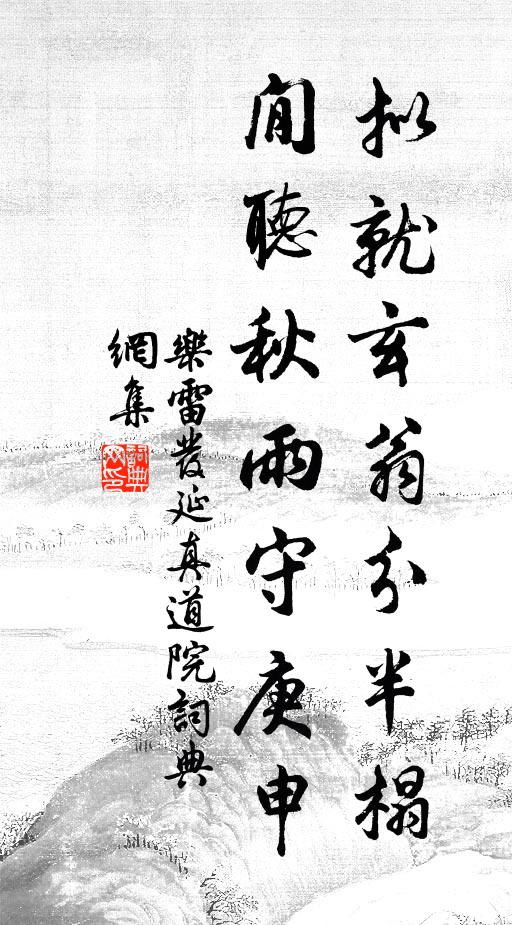 拟就玄翁分半榻
閒聽秋雨守庚申
樂雷發延真道院詞典
網集
詞典
网印